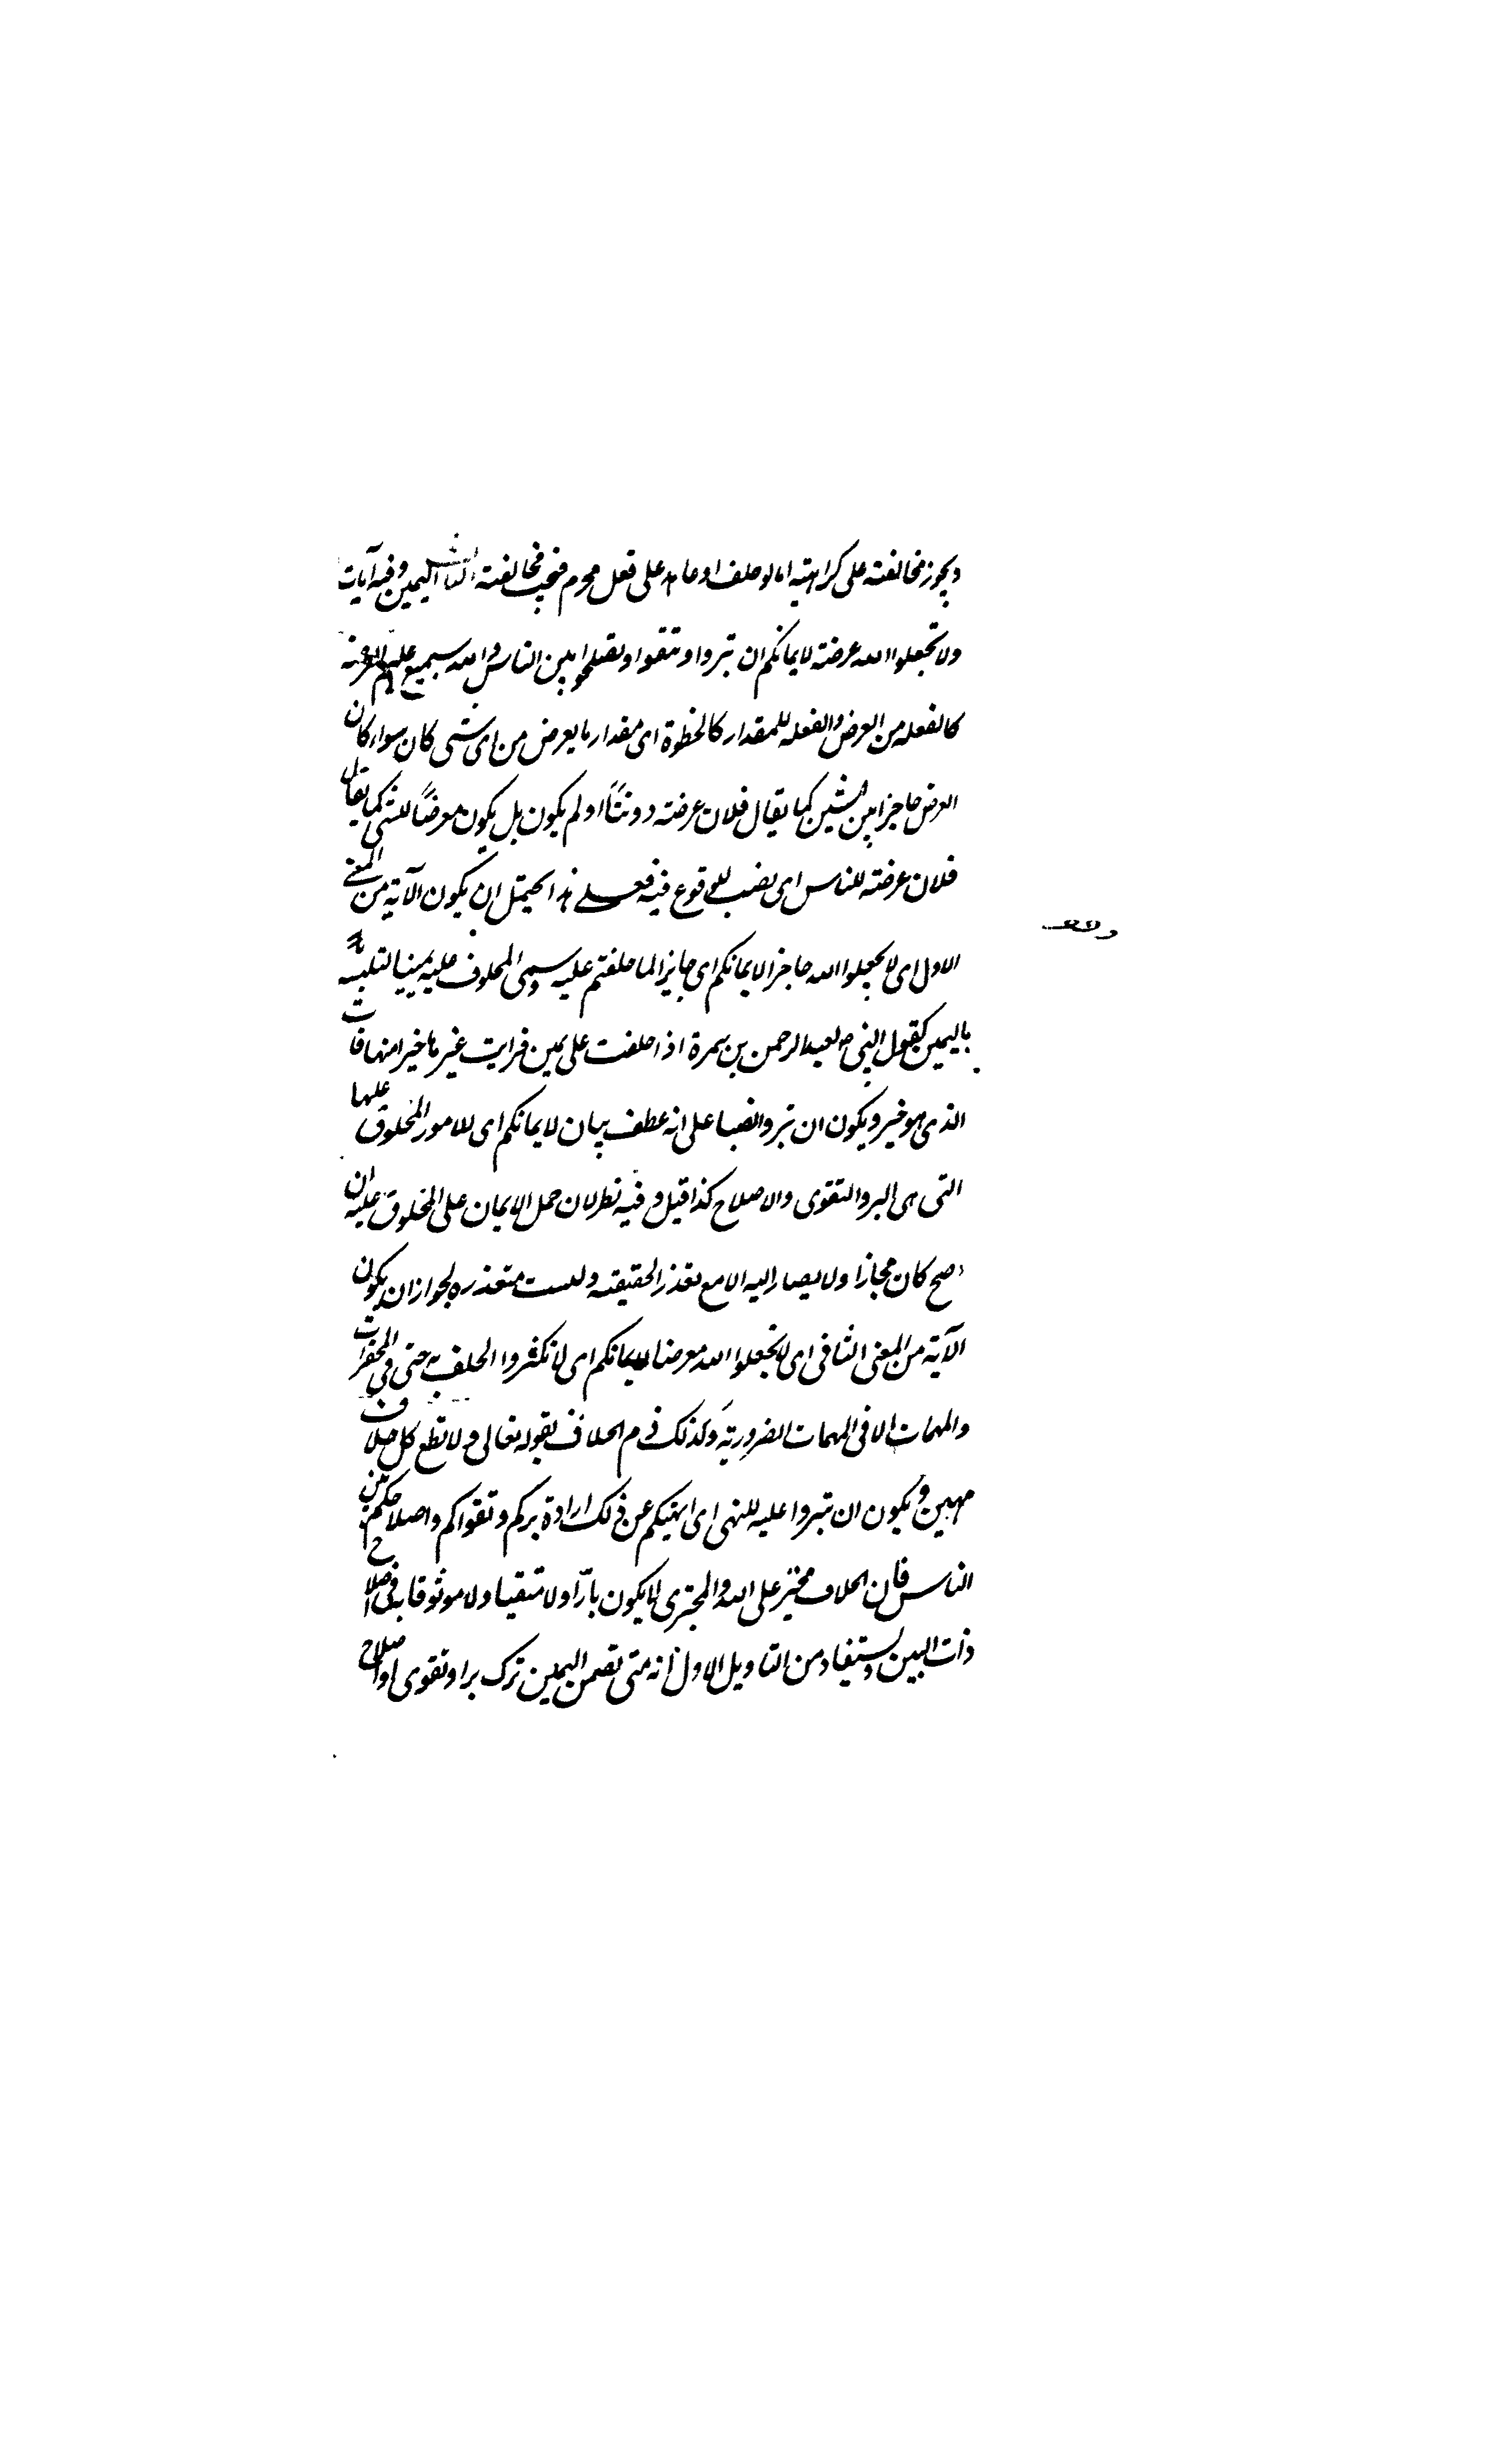 ويجوز مخالفته على كراهته اما لو حلف او عاهد على فعل محرم فيجب مخالفته الثالث اليمين وفيه آيات
ولا تجعلوا الله عرضة لايمانكم ان تبروا وتتقوا وتصلحوا بين الناس والله سميع عليم العرضة
كالفعله من العرض والفعله للمقدار كالخطوة اى مقدار ما يعرض من اى شئ كان سواء كان
العرض حاجزا بين الشيئين كما يقال فلان عرضته دوننا او لم يكون بل يكون معرضاً للشئ كما يقال
فلان عرضته للناس اى نصب للوقوع فيه فعلى هذا يحتمل ان يكون الآية من المعنى
الاول اى لا تجعلوا الله حاجزا لايمانكم اى حاجزا لما حلفتم عليه وسمى المحلوف عليه يمينا لتلبسه
باليمين كقول النبى ص لعبد الرحمن بن سمرة اذا حلفت على يمين فرايت غيرها خيرا منها فات
الذى هو خير ويكون ان تبروا نصبا على انه عطف بيان لايمانكم اى للامور المحلوف عليها
التى هى البر والتقوى والاصلاح كذا قيل وفيه نظر لان حمل الايمان على المحلوف عليه ان
صح كان مجازا ولا يصار اليه الا مع تعذر الحقيقه وليست متعذره لجواز ان يكون
الآية من المعنى الثانى اى لا تجعلوا الله معرضا لايمانكم اى لا تكثروا الحلف به حتى فى المحقرات
والمهمات الا فى المهمات الضرورية ولذلك ذم الحلاف بقوله تعالى ولا تطع كل حلاف
مهين ويكون ان تبروا عليه للنهى اى انهيكم عن ذلك ارادة بركم وتقواكم واصلاحكم بين
الناس فان الحلاف مجتر على الله والمجترى لا يكون بارّا ولا متقيا ولا موثوقا به فى اصلاح
ذات البين ويستفاد من التاويل الاول انه متى تضمن اليمين ترك بر او تقوى او اصلاح